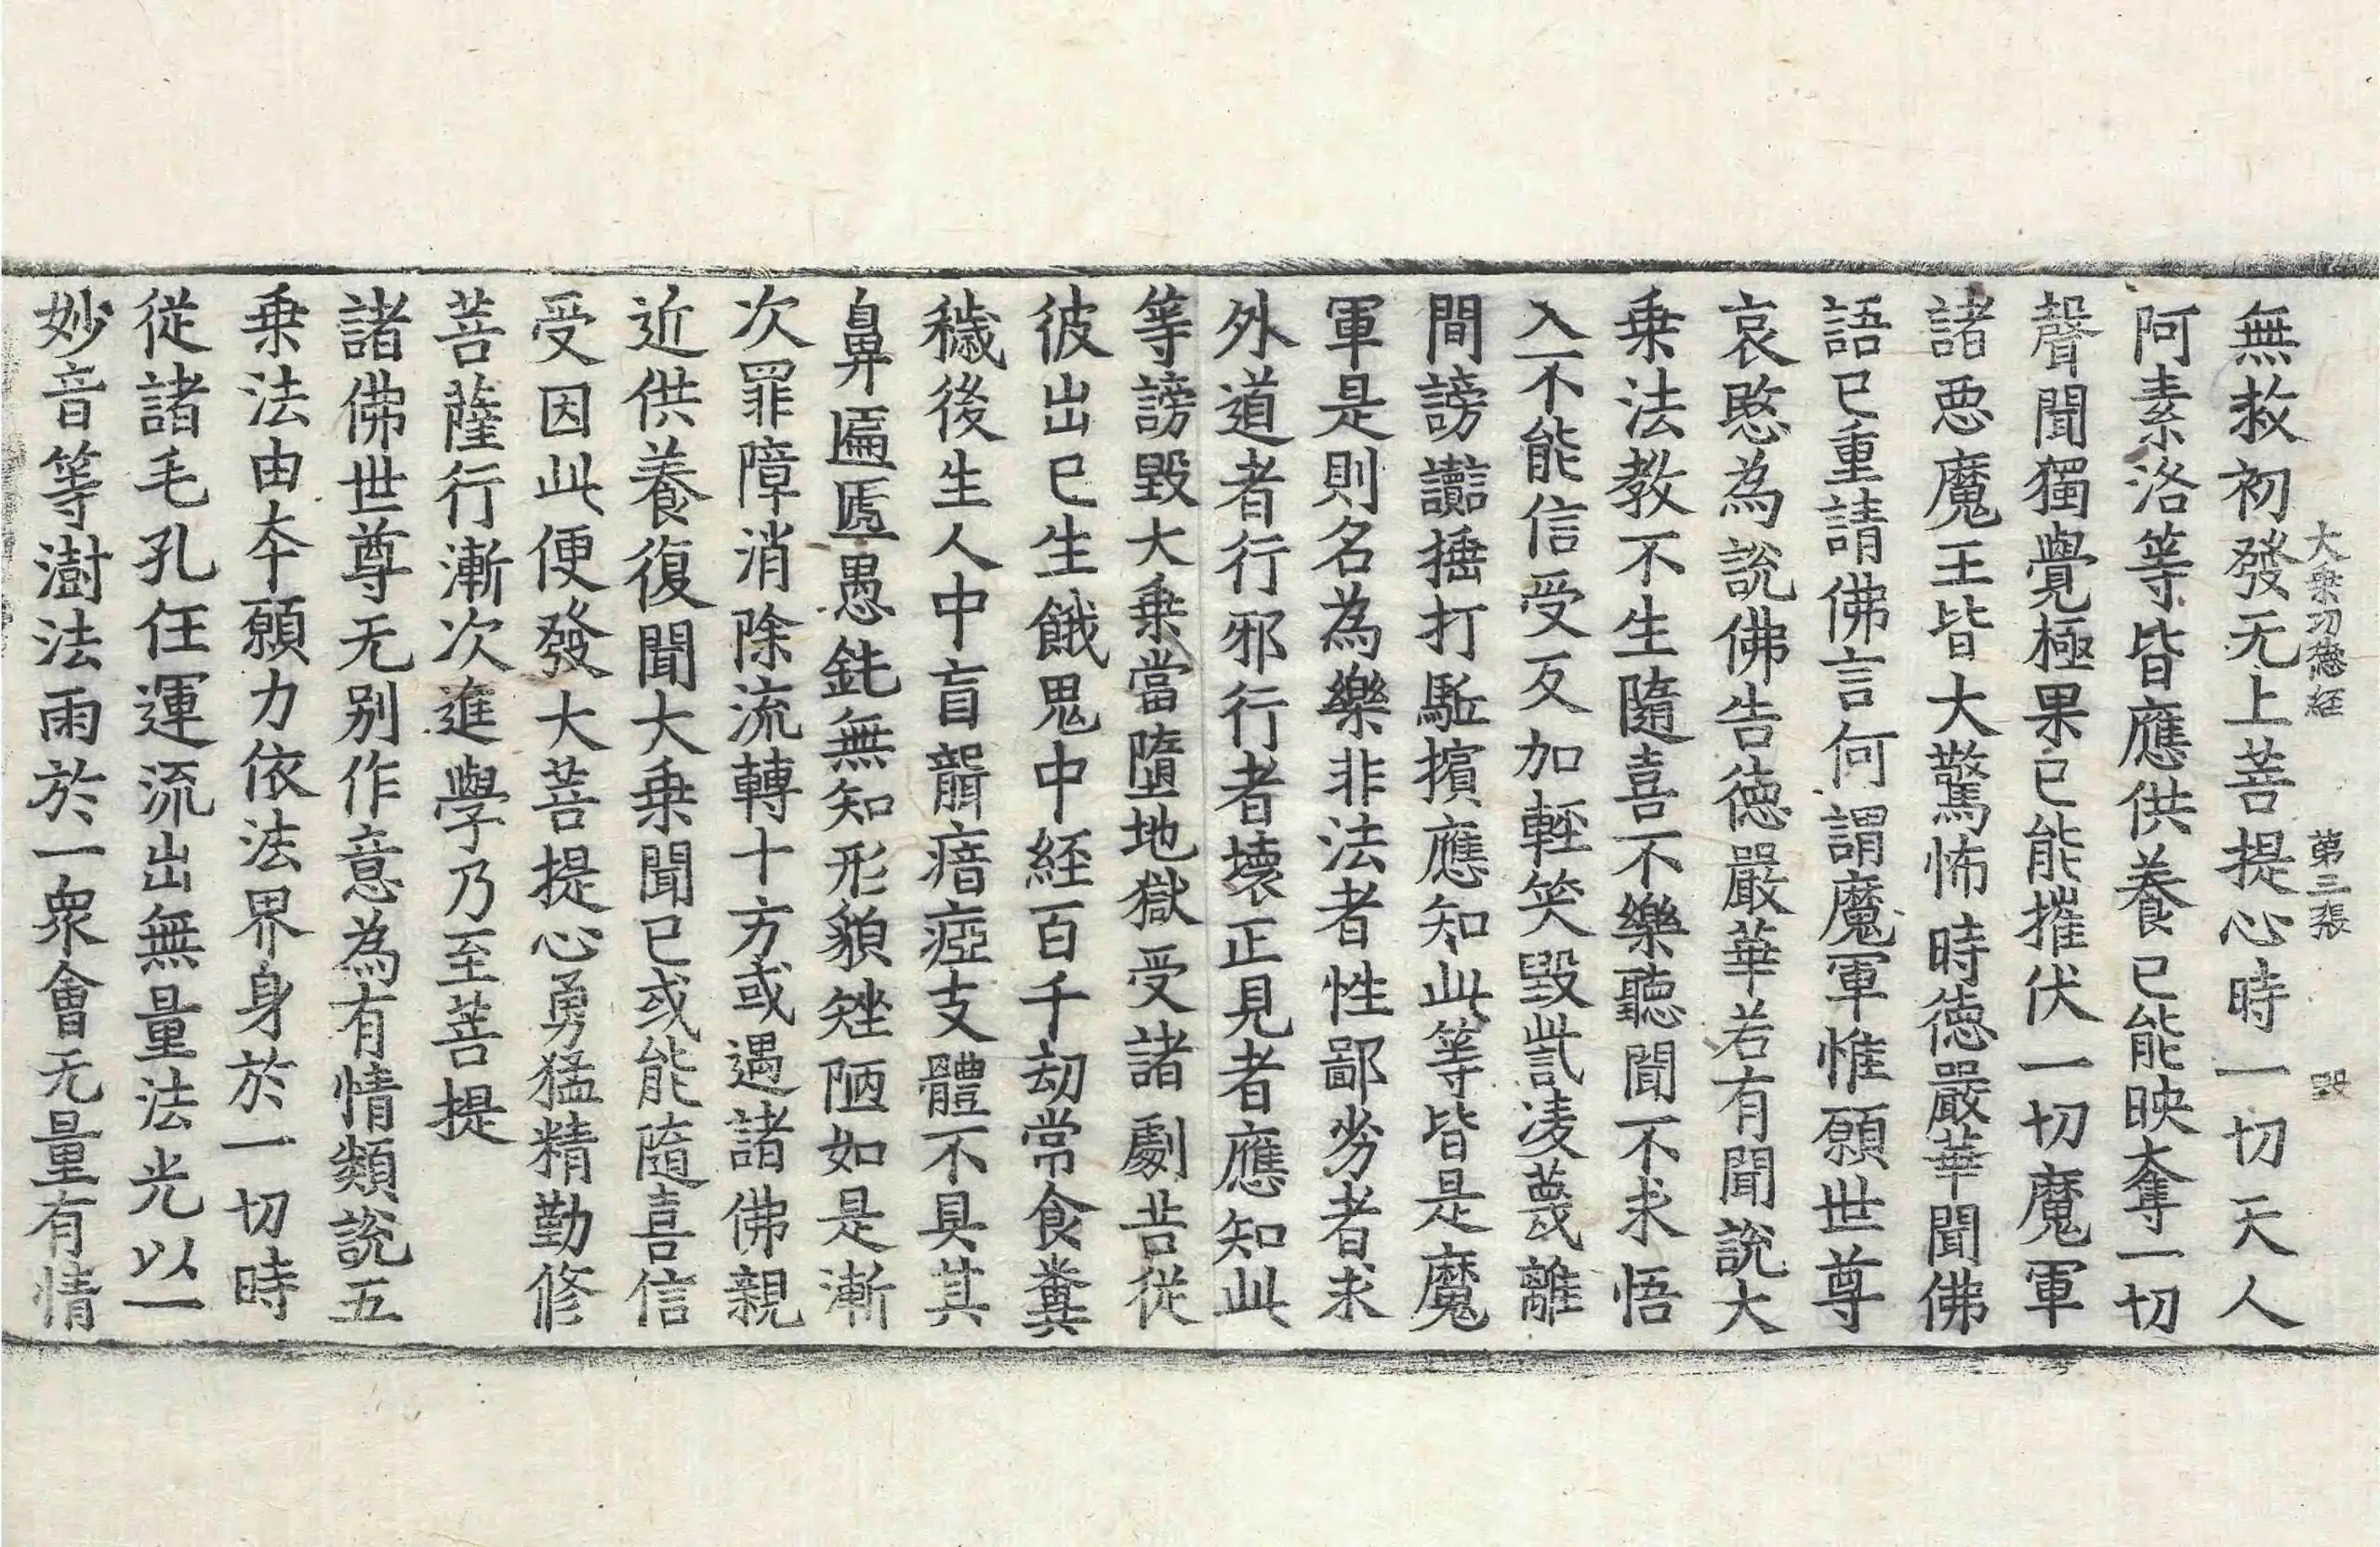 大乗功徳経　第三張　毀
無救初發无上菩提心時一切天人
阿素洛等皆應供養已能映奪一切
聲聞獨覺極果已能摧伏一切魔軍
諸惡魔王皆大驚怖時徳嚴華聞佛
語已重請佛言何謂魔軍惟願世尊
哀愍為說佛告徳嚴華若有聞說大
乗法教不生隨喜不樂聽聞不求悟
入不能信受反加輕笑毀呰凌蔑離
間謗讟捶打駈擯應知此等皆是魔
軍是則名為樂非法者性鄙劣者求
外道者行邪行者壞正見者應知此
等謗毀大乗當墮地獄受諸劇苦從
彼出已生餓鬼中経百千劫常食糞
穢後生人中盲聾瘖瘂支體不具其
鼻匾㔸愚鈍無知形貌矬陋如是漸
次罪障消除流轉十方或遇諸佛親
近供養復聞大乗聞已或能隨喜信
受因此便發大菩提心勇猛精勤修
菩薩行漸次進學乃至菩提
諸佛世尊无别作意為有情類說五
乗法由本願力依法界身於一切時
從諸毛孔任運流出無量法光以一
妙音等澍法雨於一衆會无量有情